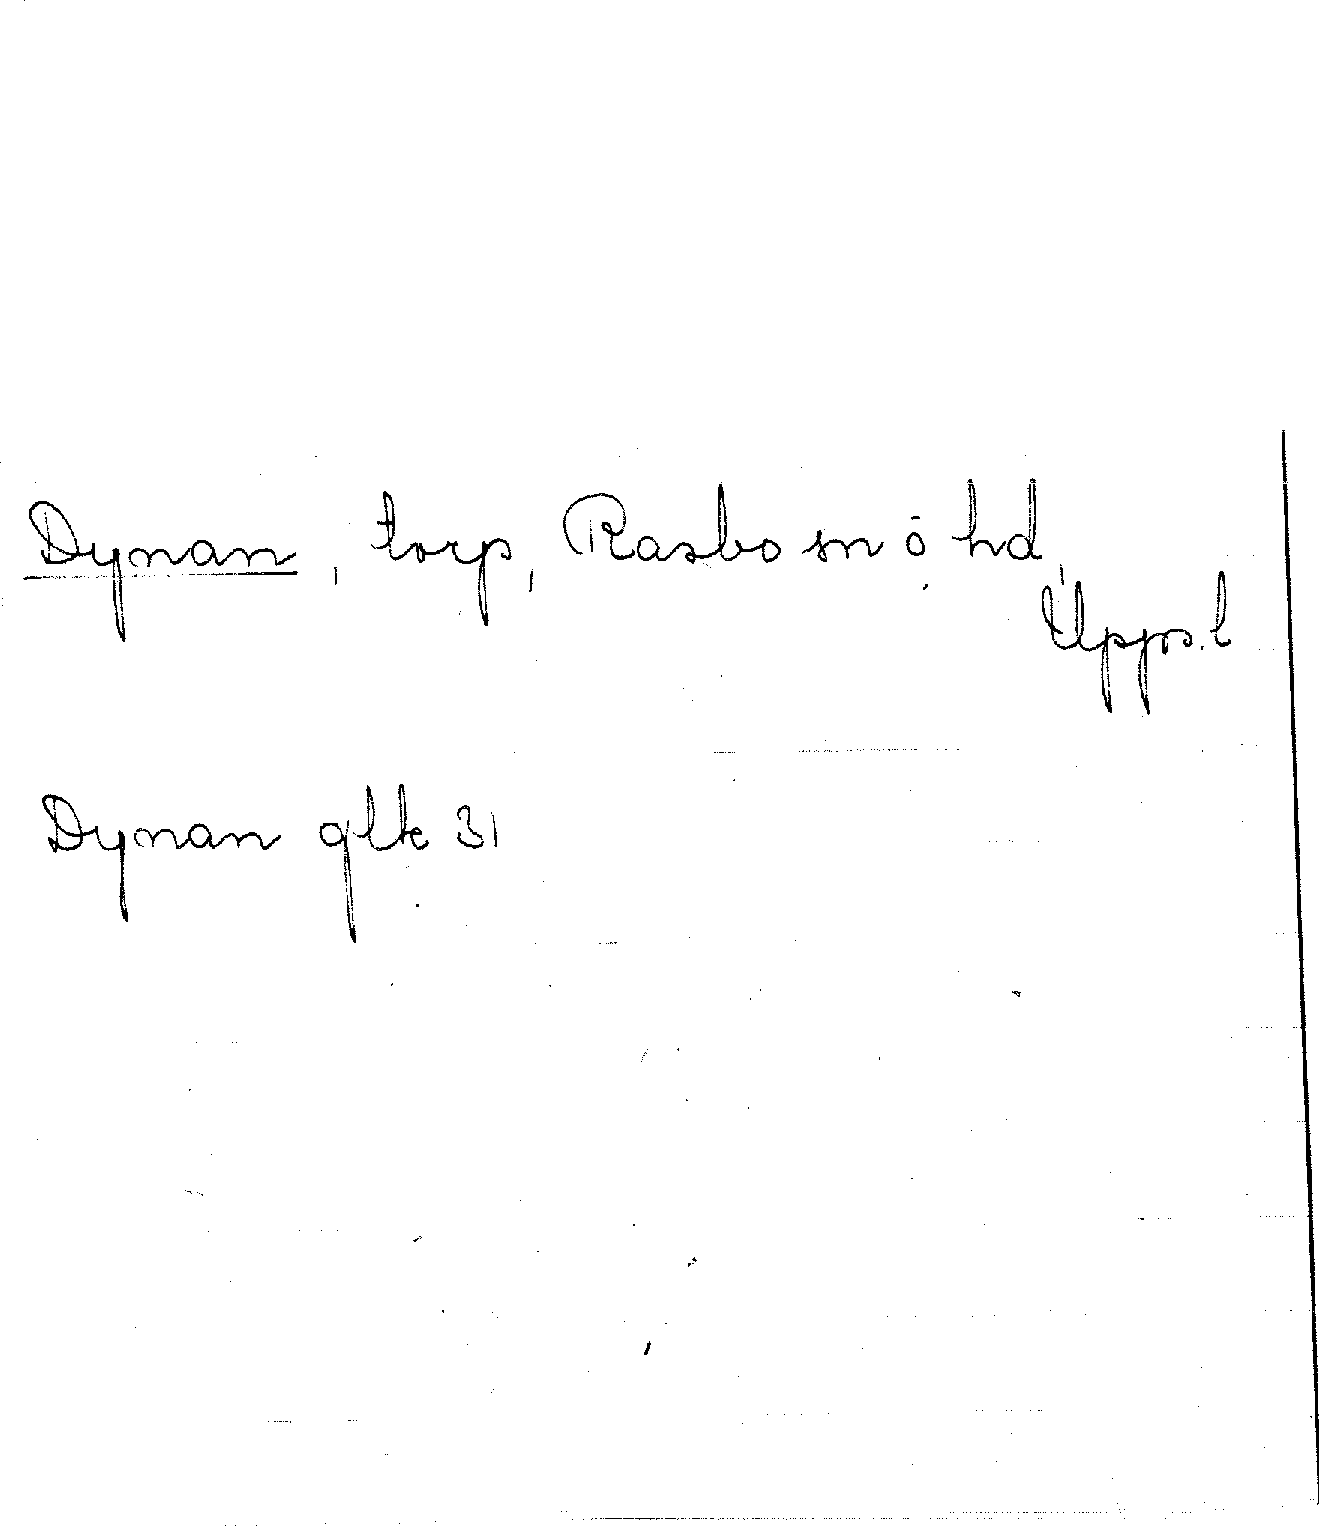 Dynan, torp, Rasbo sn o hd,
Upps. l
Dynan glk 31